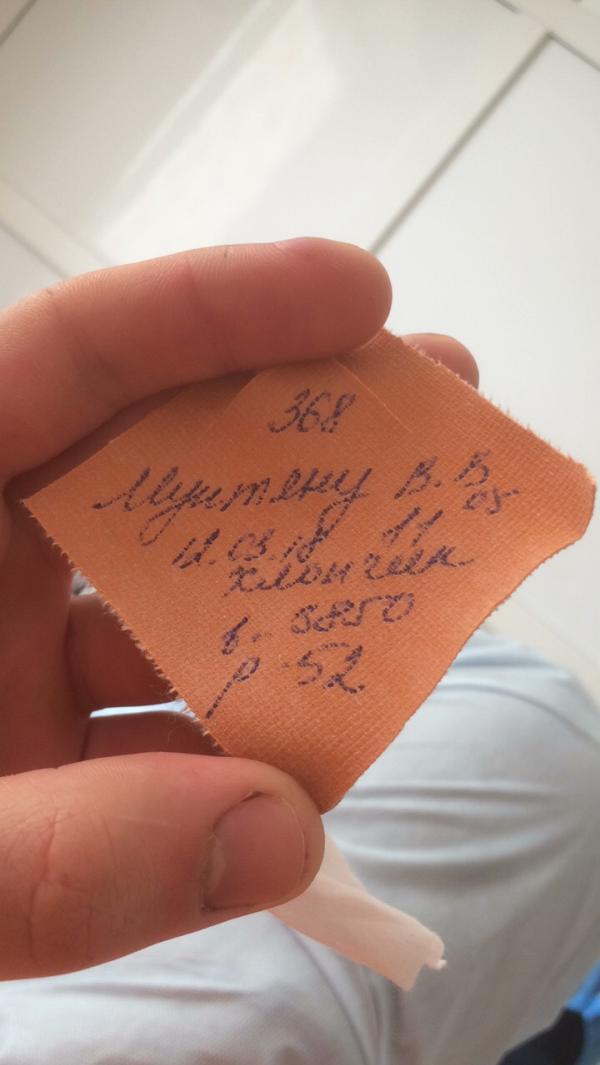 368
Мунтену В. В
11.03.18 11 05
хлопчик
в- 3850
р-52